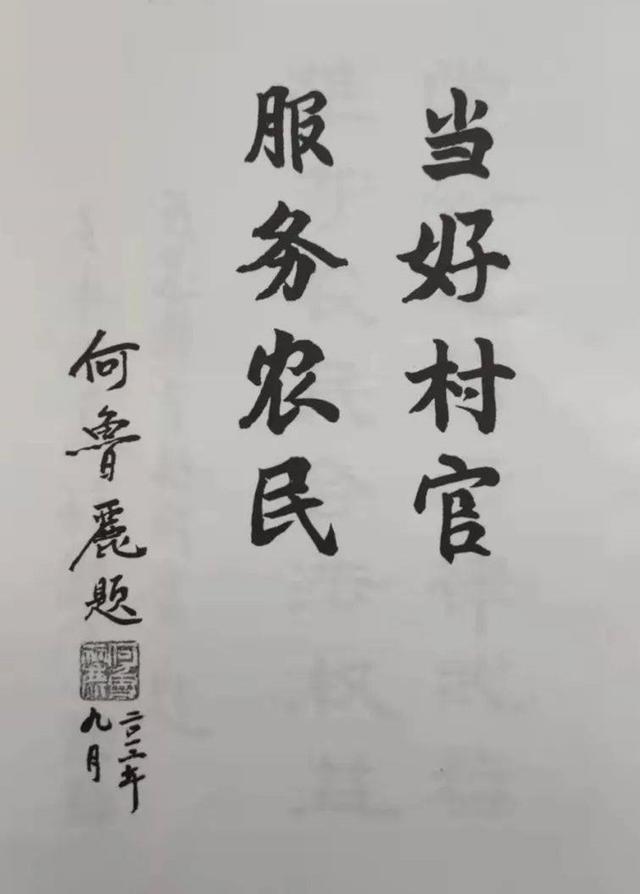 当好村官
服务农民
何鲁麗题
二〇一二年
九月